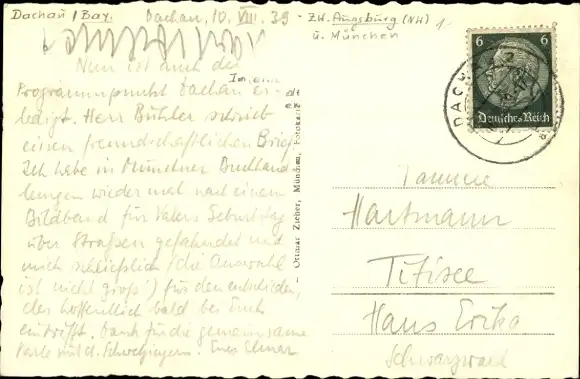 Dachau / Bay.
Dachau, 10. VIII. 39
- Zw. Augsburg (NH)
u. München
Nun ist auch der
Programmpunkt Dachau er-
ledigt. Herr Bühler schrieb
einen freundschaftlichen Brief.
Ich habe in Münchner Buchhand
lungen wieder mal nach einem
Bildband für Vaters Geburtstag
über Straßen gefahndet und
mich schließlich (die Auswahl
ist nicht groß!) für den entschieden,
der hoffentlich bald bei Euch
eintrifft. Dank für die gemeinsame
Karte mit d. Schwetzingern. Euer Elmar
Ottmar Zieher, München, Fotokarte
6 6
Deutsches Reich
DACHAU
Familie
Hartmann
Titisee
Haus Erika
Schwarzwald